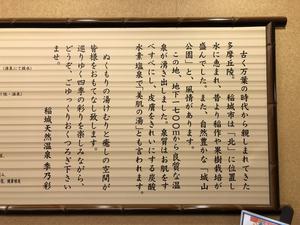 古く万葉の時代から親しまれてきた
多摩丘陵。稲城市は「北」に位置し
水に恵まれ、昔より稲作や果樹栽培が
盛んでした。また、自然豊かな「城山
公園」と、風情があります。
この地、地下一七〇〇mから良質な温
泉が湧き出しました。泉質はお肌をす
べすべにし、皮膚をきれいにする炭酸
水素塩泉で、「美肌の湯」とも言われます。
ぬくもりの湯けむりと癒しの空間が
皆様をおもてなし致します。
巡りゆく四季の彩りを楽しみながら、
どうぞ、ごゆっくりおくつろぎ下さい
ませ。
稲城天然温泉 季乃彩